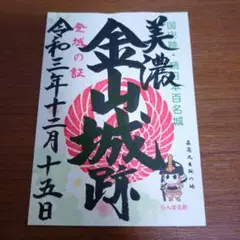 国史跡・続日本百名城
美濃
金山城跡
登城の証
令和三年十二月十五日